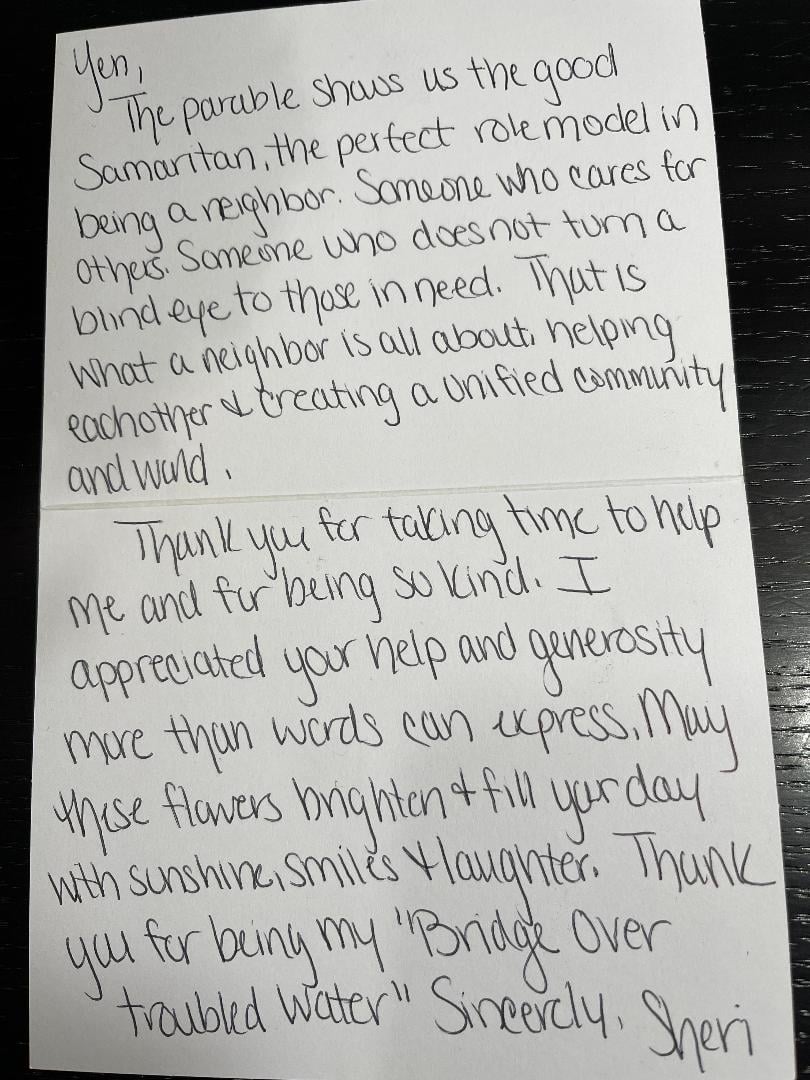 Yen,
The parable shows us the good
Samaritan, the perfect role model in
being a neighbor. Someone who cares for
others. Someone who does not turn a
blind eye to those in need. That is
what a neighbor is all about, helping
eachother & creating a unified community
and world.
Thank you for taking time to help
me and for being so kind. I
appreciated your help and generosity
more than words can express. May
these flowers brighten & fill your day
with sunshine, smiles & laughter. Thank
you for being my "Bridge Over
troubled Water" Sincerely, Sheri